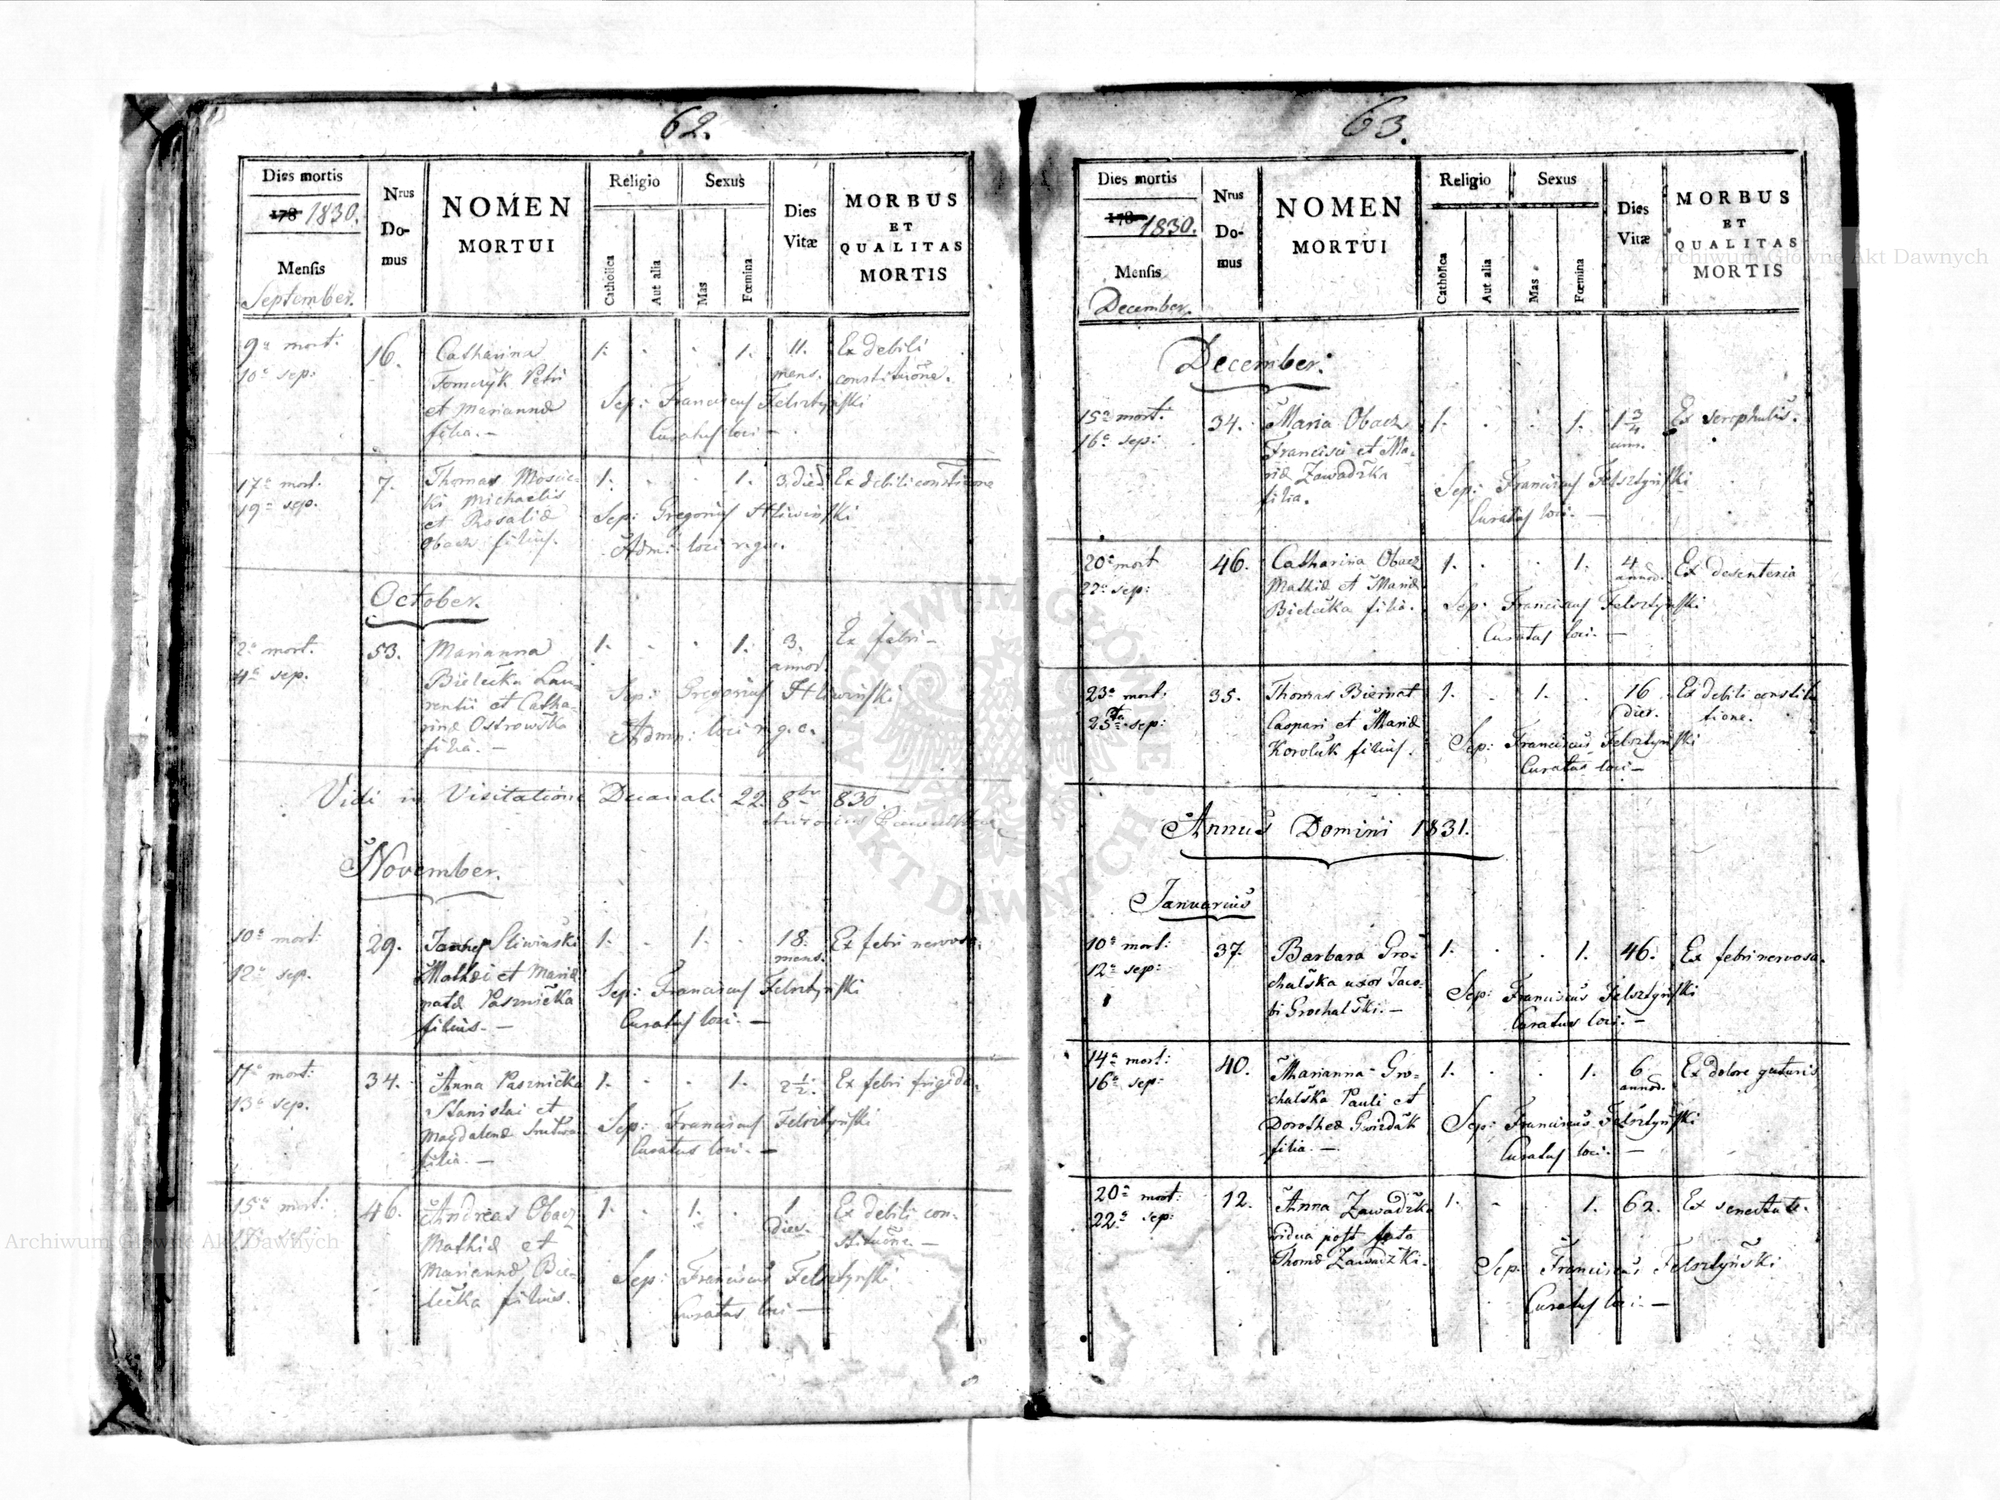 62.
Dies mortis
178 1830.
Mensis
September.
Nrus Do-mus
NOMEN MORTUI
Religio
Catholica
Aut alia
Sexus
Mas
Fœmina
Dies Vitæ
MORBUS ET QUALITAS MORTIS
9a mort: 16. Catharina 1. - - 1. 11. Ex debili
10a sep: Tomczyk Petri mens. constitutione.
et Mariannæ Sep: Franciscus Felsztyński
filia. — Curatus loci —
17a mort. 7. Thomas Mosiec- 1. - - 1. 3. died. Ex debili constitione
19a sep. ki Michaelis
et Rosaliæ Sep: Gregorius Hliwiński
Obacz filius. Adm: loci
October.
2a mort. 53. Marianna 1. - - 1. 3. Ex febri —
4a sep. Bielecka Lau- annor.
rentii et Catha- Sep: Gregorius Hliwiński
rinæ Ostrowska Admn: loci
filia. —
Vidi in Visitatione Decanali 22. 8br 830.
November.
10a mort: 29. Sliwinski 1. - 1. - 18. Ex febri nervosa.
12a sep. Mathæi et Mariæ mens.
natæ Pasznicka Sep: Franciscus Felsztyński
filius. — Curatus loci. —
17a mort: 34. Anna Pasznicka 1. - - 1. 2 1/2. Ex febri frigida.
13a sep. Stanislai et
Magdalenæ Sep: Franciscus Felsztyński
filia. — Curatus loci. —
15a mort: 46. Andreas Obacz 1. - 1. - 1 Ex debili con-
Mathiæ et dies. stitutione —
Mariannæ Bie- Sep: Franciscus Felsztyński
lecka filius. Curatus loci —
63.
Dies mortis
178 1830.
Mensis
December.
Nrus Do-mus
NOMEN MORTUI
Religio
Catholica
Aut alia
Sexus
Mas
Fœmina
Dies Vitæ
MORBUS ET QUALITAS MORTIS
December.
15a mort. 34. Maria Obacz 1. - - 1. 1 3/4 Ex scrophulis.
16a sep: Francisci et Ma- ann.
riæ Zawadzka Sep: Franciscus Felsztyński
filia. Curatus loci. —
20a mort 46. Catharina Obacz 1. - - 1. 4 Ex desenteria
22a sep: Mathiæ et Mariæ annor.
Bielecka filia. Sep: Franciscus Felsztyński
Curatus loci. —
23a mort: 35. Thomas Biernat 1. - 1. - 16 Ex debili constitu
25ta sep: Caspari et Mariæ dier. tione.
Koroluk filius. Sep: Franciscus Felsztyński
Curatus loci —
Annus Domini 1831.
Januarius
10a mort: 37. Barbara Gro- 1. - - 1. 46. Ex febri nervosa.
12a sep: chalska uxor Jaco- Sep: Franciscus Felsztyński
bi Grochalski. — Curatus loci. —
14a mort: 40. Marianna Gro- 1. - - 1. 6 Ex dolore guturis
16a sep: chalska Pauli et annor.
Dorotheæ Gwizdak Sep: Franciscus Felsztyński
filia. — Curatus loci. —
20a mort: 12. Anna Zawadzka 1. - - 1. 62. Ex senectute.
22a sep: vidua post fata
Thomæ Zawadzki. Sep: Franciscus Felsztyński
Curatus loci. —
ARCHIWUM GŁÓWNE AKT DAWNYCH
Archiwum Główne Akt Dawnych
Archiwum Główne Akt Dawnych